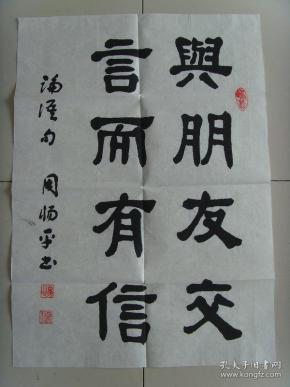 與朋友交
言而有信
論語句 周炳平书
孔夫子旧书网